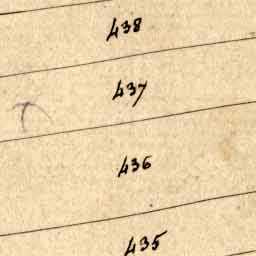 438
437
436
435